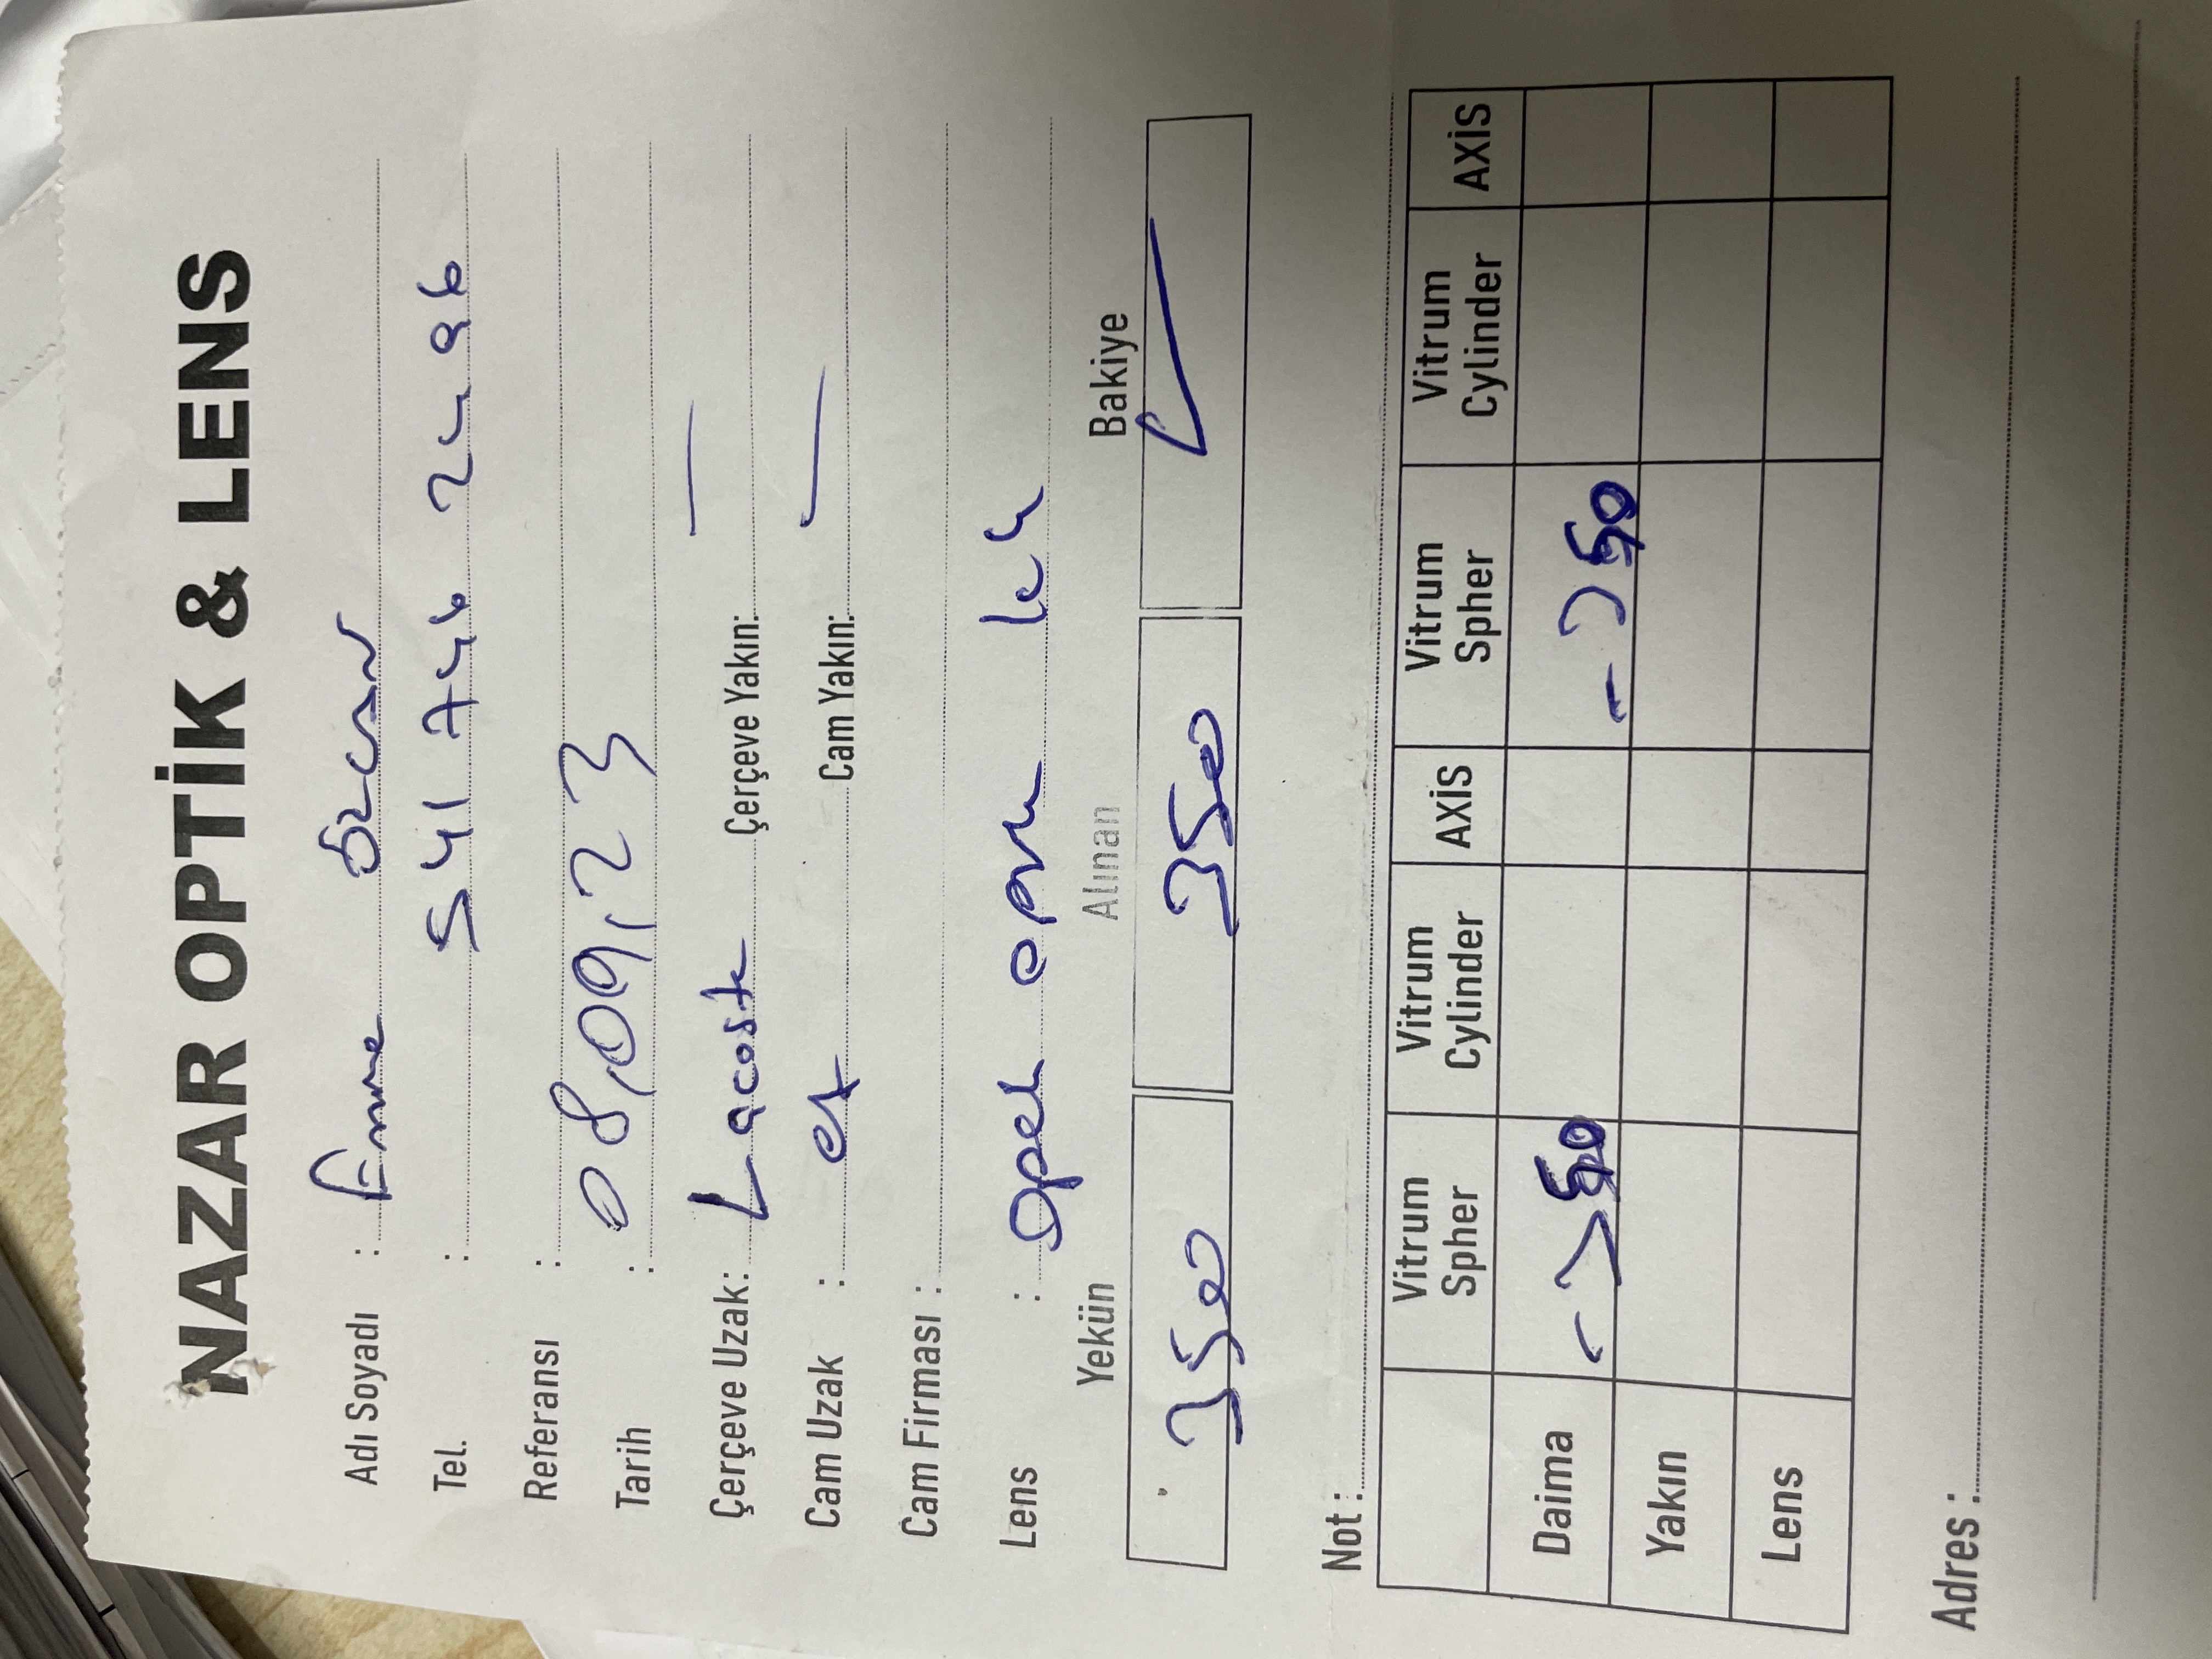 NAZAR OPTİK & LENS
Adı Soyadı : Emre Özcan
Tel. : 541 746 24 96
Referansı :
Tarih : 08,09,23
Çerçeve Uzak: Lacoste Çerçeve Yakın: —
Cam Uzak : Cam Yakın: —
Cam Firması :
Lens :
Yekün Alınan Bakiye
350 350
Not :
Vitrum Spher Vitrum Cylinder AXİS Vitrum Spher Vitrum Cylinder AXİS
Daima
Yakın
Lens
Adres :